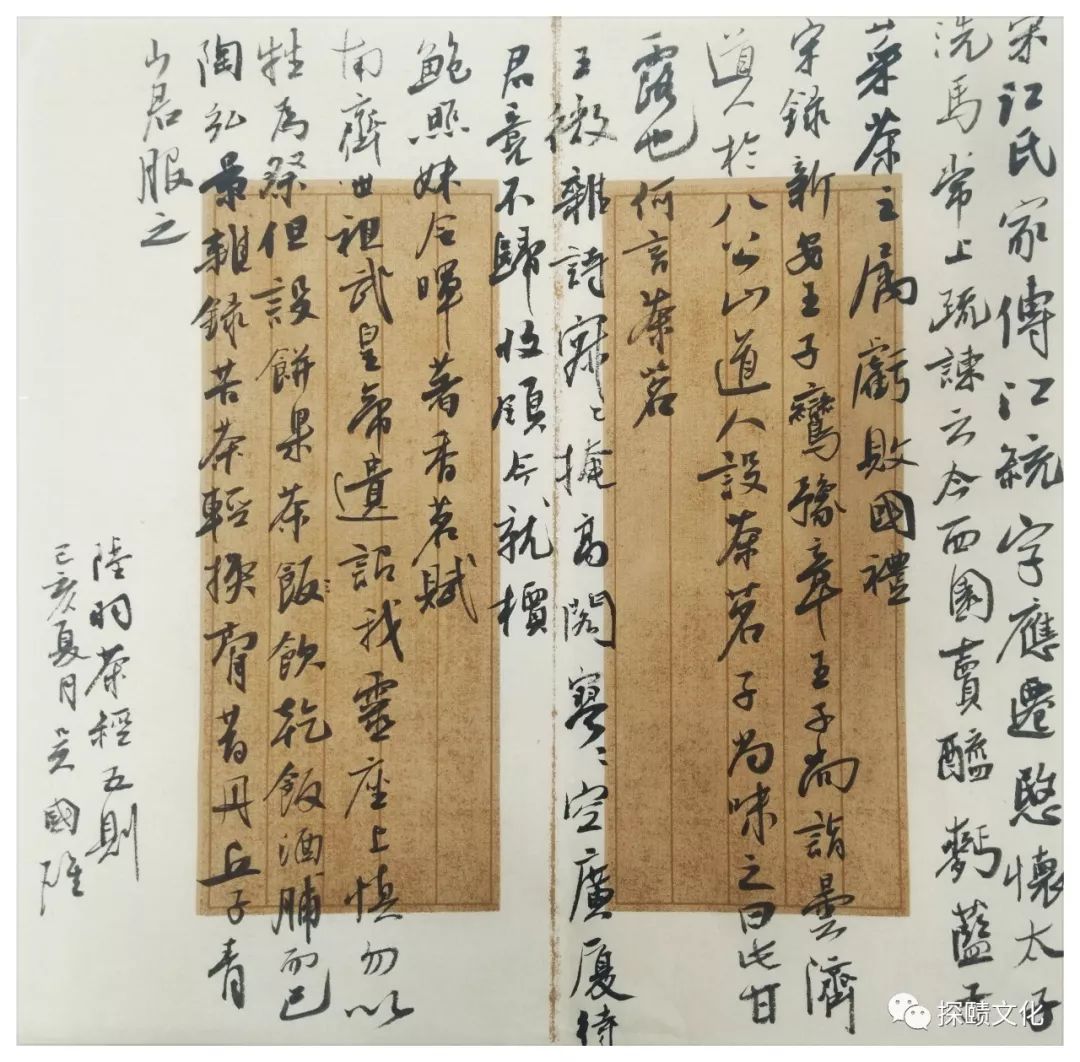 宋江氏家傳江統字應遷愍懷太子
洗馬常上疏諫云今西園賣醯麪藍子
菜茶之属虧敗國禮
宋錄新安王子鸞豫章王子尚詣曇濟
道人於八公山道人設茶茗子尚味之曰此甘
露也何言茶茗
王微雜詩寂〻掩高閣寥〻空廣厦待
君竟不歸收領今就檟
鮑照妹令暉著香茗賦
南齊世祖武皇帝遺詔我靈座上慎勿以
牲為祭但設餅果茶飯飲乾飯酒脯而已
陶弘景雜錄苦茶輕換膏昔丹丘子青
山君服之
陸羽茶經五則
己亥夏月 國
探賾文化